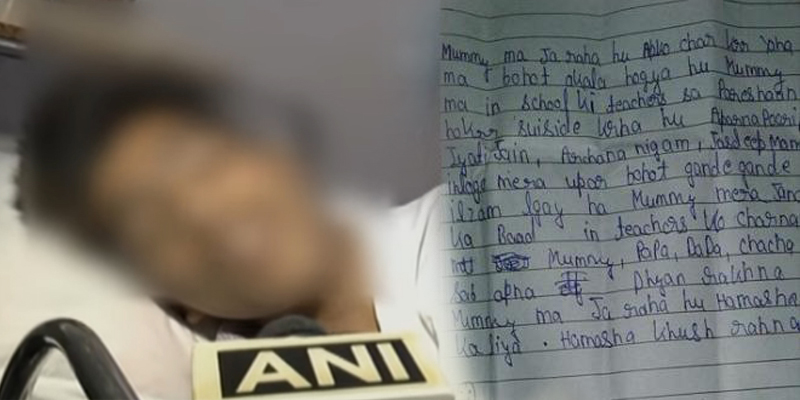 ANI
Mummy ma Ja raha hu Apko chor kar yaha
ma bohot akala hogya hu Mummy
ma in school ki teachers sa Pareshan
hokar suiside krha hu
Jyoti Jain, Archana nigam,
inloge mera upar bohot gande gande
ilzam lgay ha Mummy mera Jane
ka Baad in teachers ko
mat Mummy, PaPa, DaDa, chacha
Sab apna Dhyan rakhna
Mummy ma Ja raha hu Hamasha
ka liya . Hamasha khush rahna